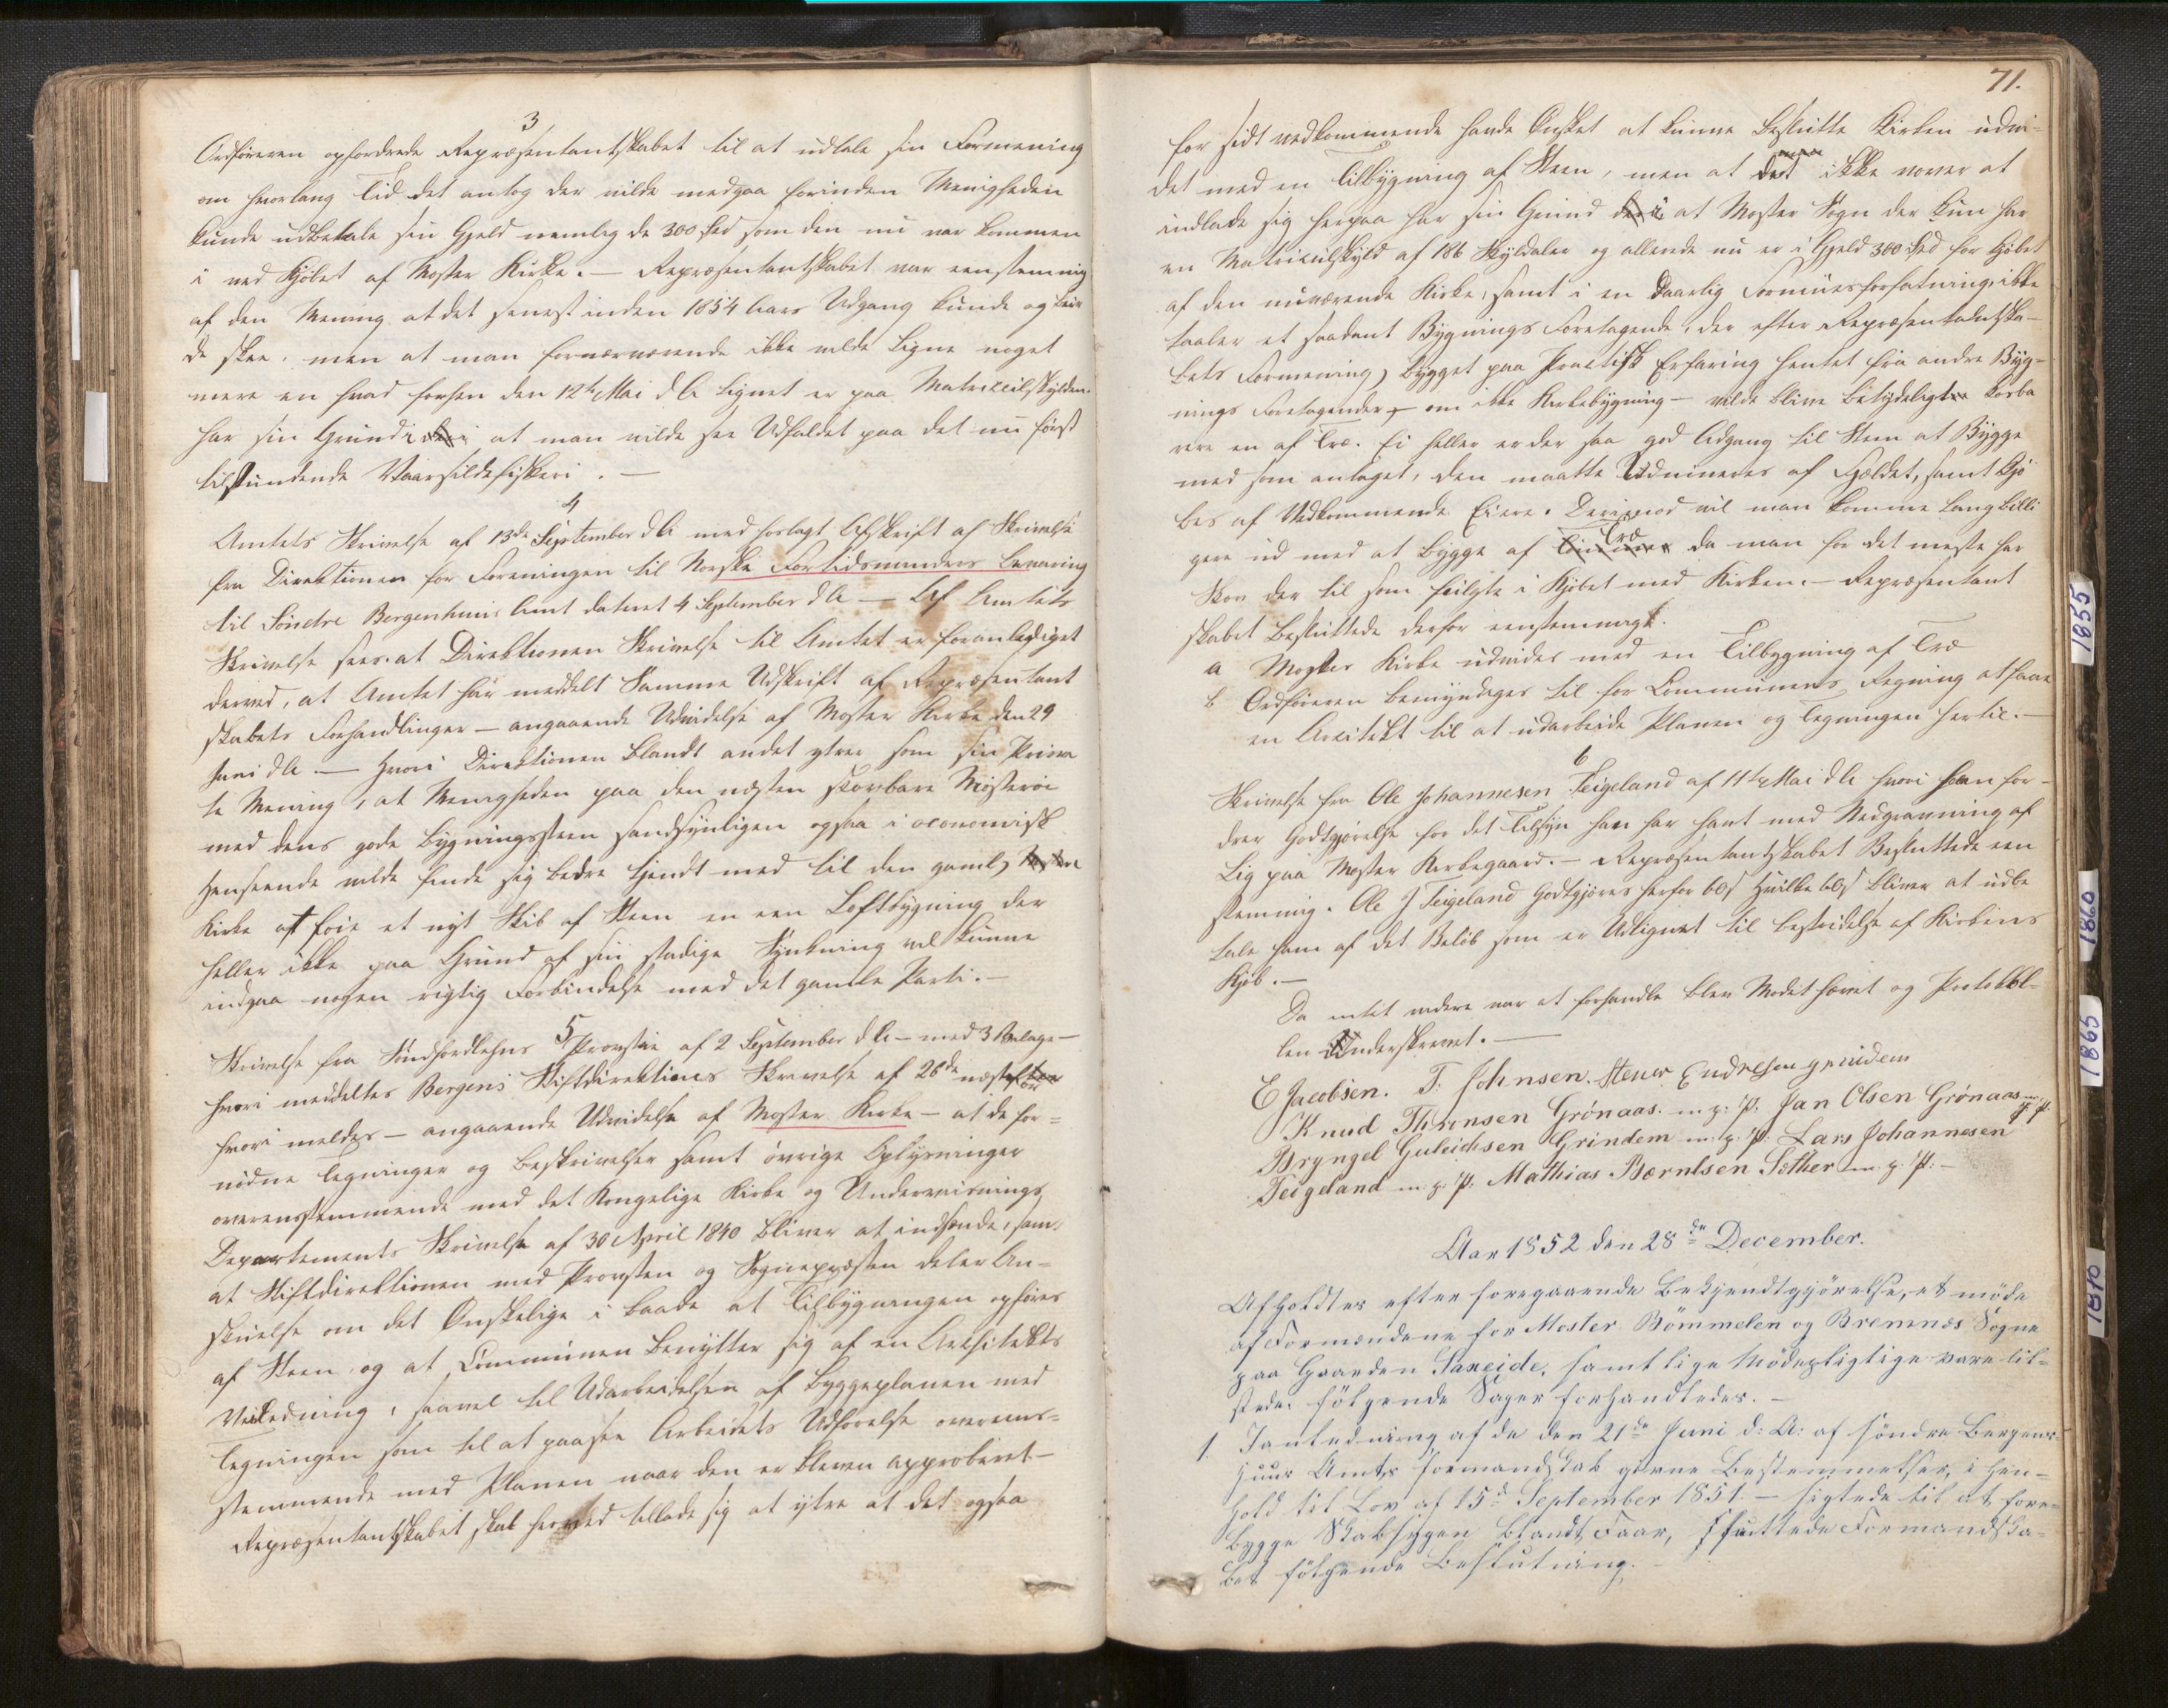 3
Ordføreren opfordrede Repræsentantskabet til at udtale sin Formening
om hvorlang Tid det antog der vilde medgaa forinden Menigheden
kunde udbetale sin Gjeld nemlig de 300 Spd som den nu var kommen
i ved Kjøbet af Moster Kirke. — Repræsentantskabet var eenstemmig
af den Mening at det senest inden 1854 Aars Udgang kunde og bur
de skee. men at man fornærværende ikke vilde Ligne noget
mere en hvad forhen den 12te Mai d A lignet er paa Matriculskylden.
har sin Grund i at man vilde see Udfaldet paa det nu først
tilstundende Vaarsildefiskeri. —
4
Amtets Skrivelse af 13de September d A med forlagt Afskrift af Skrivelse
fra Direktionen for Foreningen til Norske Fortidsminders Bevaring
til Søndre Bergenhuus Amt dateret 4 September d A — Af Amtets
Skrivelse sees at Direktionen Skrivelse til Amtet er foranlediget
derved, at Amtet har meddelt Samme Udskrift af Repræsentant
skabets Forhandlinger — angaaende Udvidelse af Moster Kirke den 29
Juni d A. — Hvori Direktionen blandt andet ytrer som sin Priva
te Mening, at Menigheden paa den næsten skovbare Mosterøe
med dens gode Bygningssteen sandsynligen ogsaa i oconomisk
Henseende vilde finde sig bedre tjendt med til den gamle
Kirke at føie et nyt Skib af Steen en een Loftbygning der
heller ikke paa Grund af sin stadige Synkning vil kunne
indgaa nogen rigtig Forbindelse med det gamle Parti. —
5
Skrivelse fra Søndhordlehns Provstie af 2 September d A — med 3 Bilage —
hvori meddeltes Bergens Stiftdirektions Skrivelse af 28de næstfør
hvori meldes — angaaende Udvidelse af Moster Kirke — at de for=
nødne Tegninger og Beskrivelser samt øvrige Oplysninger
overensstemmende med det Kongelige Kirke og Undervisnings
Departements Skrivelse af 30 April 1840 bliver at indsende, sam
at Stiftdirektionen med Provsten og Sognepræsten deler An=
skuelse om det Ønskelige i baade at Tilbygningen opføres
af Steen og at Communen benytter sig af en Architekts
Veiledning, saavel til Udarbeidelsen af Byggeplanen med
Tegningen som til at paasee Arbeidets Udførelse overeens=
stemmende med Planen naar den er bleven approberet —
Repræsentantskabet skal herved tillade sig at ytre at det ogsaa
71.
for sidt vedkommende havde Ønsket at kunne beslutte Kirken udvi=
det med en Tilbygning af Steen, men at man ikke vover at
indlade sig herpaa har sin Grund i at Moster Sogn der kun har
en Matriculskyld af 186 Skyldaler og allerede nu er i Gjeld 300 Spd for Kjøbet
af den nuværende Kirke, samt i en daarlig Formuesforfatning, ikke
taaler et saadant Bygnings Foretagende, der efter Repræsentantska-
bets Formening, bygget paa Practisk Erfaring hentet fra andre Byg=
nings Foretagender — om ikke Kirkebygning — vilde blive betydeligt kostba
rere en af Træ. Ei heller er der saa god Adgang til Steen at Bygge
med som antaget, den maatte Udmineres af Fjeldet, samt kjø
bes af Vedkommende Eiere. Derimod vil man komme langt billi
gere ud med at bygge af Træ da man for det meste har
Skov der til som fulgte i Kjøbet med Kirken. — Repræsentant
skabet Besluttede derfor eenstemmigt.
a Moster Kirke udvides med en Tilbygning af Træ
b Ordføreren bemyndiges til for Communens Regning at faae
en Arcitekt til at udarbeide Planen og Tegningen hertil. —
6
Skrivelse fra Ole Johannesen Teigeland af 11te Mai d A hvori han for-
drer Godtgjørelse for det Tilsyn han har havt med Nedgravning af
Lig paa Moster Kirkegaard. — Repræsentantskabet Besluttede een
stemmig. Ole J Teigeland godtgjøres herfor 60 s Hvilke 60 s bliver at udbe
tale ham af det Beløb som er Udlignet til bestridelse af Kirkens
Kjøb. —
Da intet videre var at forhandle blev Modet hævet og Protokkol-
len Underskrevet. —
E Jacobsen. T: Johnsen. Stener Endresen grindem
Knud Thronsen Grönaas. m. p: P. Jan Olsen Grönaas m. p. P.
Bryngel Guleichsen Grindem m. p. P. Lars Johannesen
Teigeland m. p. P. Mathias Berntsen Sæther m. p. P. —
Aar 1852 den 28de December.
Afholdtes efter foregaaende Bekjendtgjörelse, et möde
af Formændene for Moster Bömmelen og Bremnæs Sogne
paa Gaarden Saxeide, samtlige Mödepligtige vare til=
stede. fölgende Sager forhandledes. —
1. I anledning af de den 21de Juni d: A: af söndre Bergen=
huus Amts formandskab givne Bestemmelser, i Hen=
hold til Lov af 15de September 1851. — sigtede til at fore=
bygge Skabsygen blandt Faar, fattede Formandska=
bet fölgende Beslutning. —
1855
1860
1865
1870